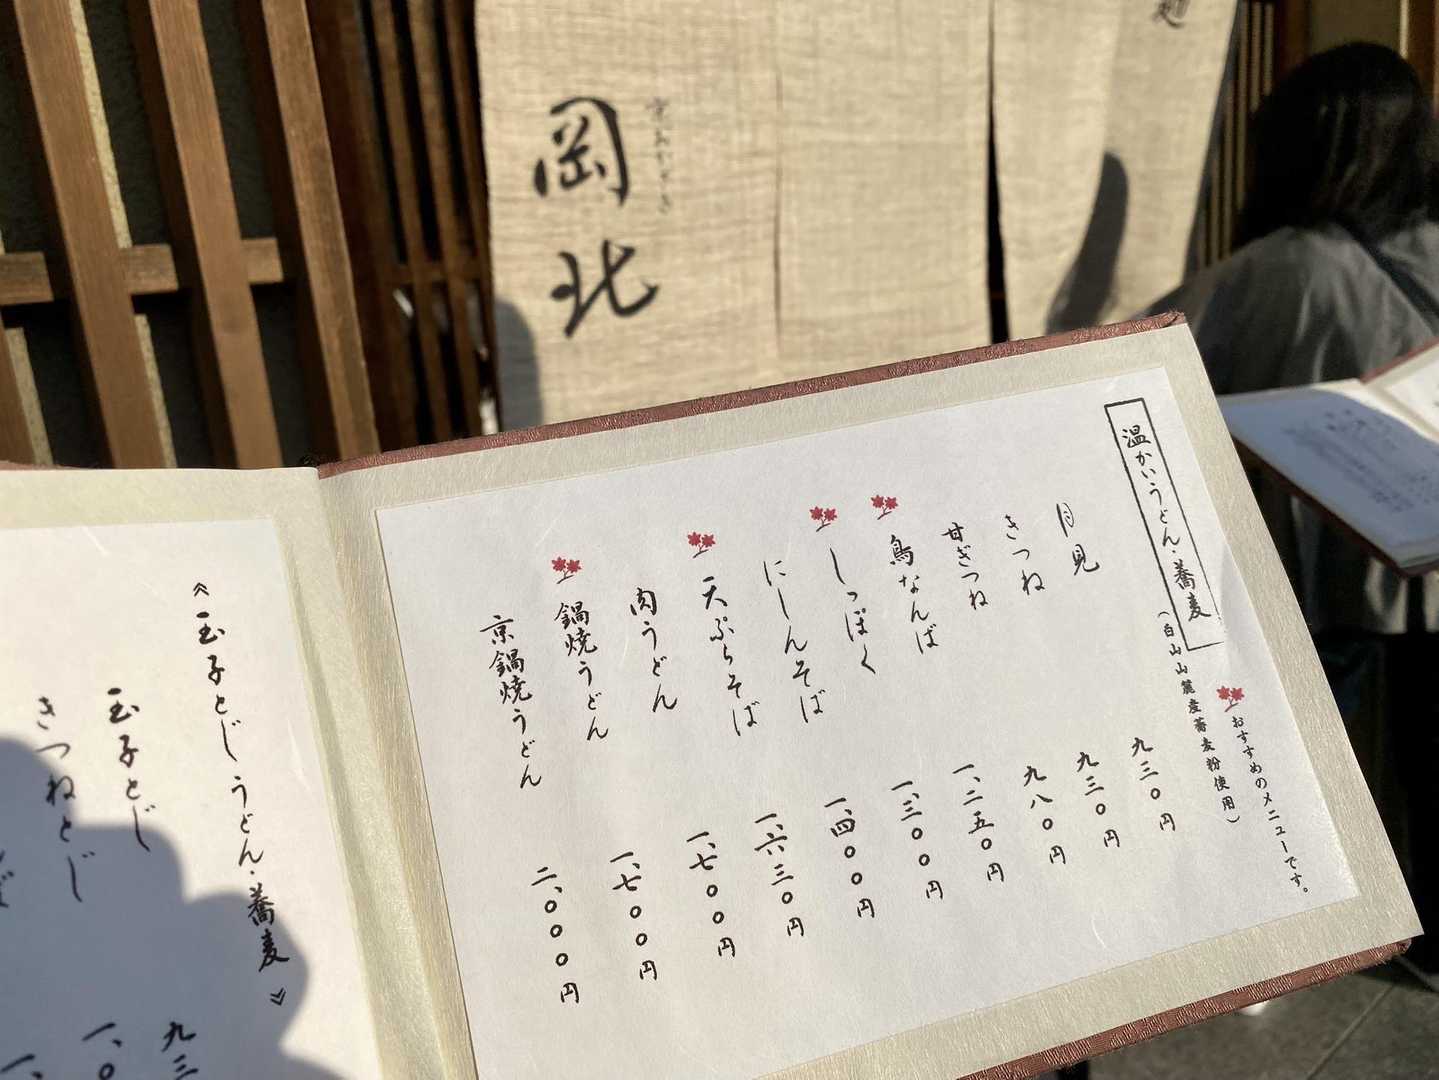 岡北
おすすめのメニューです。
温かいうどん・蕎麦
(白山山麓産蕎麦粉使用)
月見 九三〇円
きつね 九三〇円
甘ぎつね 九八〇円
鳥なんば 一、二五〇円
しっぽく 一、三〇〇円
にしんそば 一、四〇〇円
天ぷらそば 一、六三〇円
肉うどん 一、七〇〇円
鍋焼うどん 一、七〇〇円
京鍋焼うどん 二、〇〇〇円
《玉子とじうどん・蕎麦》
玉子とじ 九三
きつねとじ 一、〇